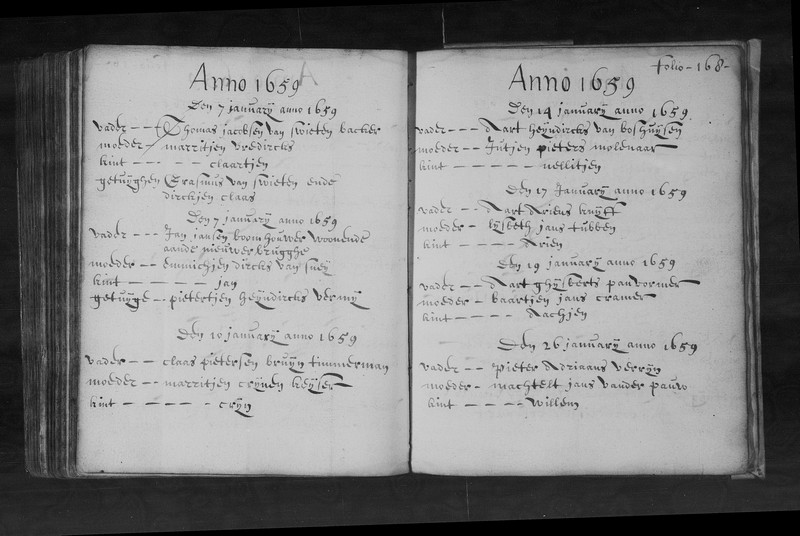 Anno 1659
Den 7 januarÿ anno 1659
vader - - Thomas jacobsen van swieten backer
moeder - marritjen dredircks
kint - - - - - claartjen
getuÿghen Erasmus van swieten ende
dirckjen claas
Den 7 januarÿ anno 1659
vader - - - Jan jansen boomhouwer woonende
aande nieuwerbrugghe
moeder - - emmichjen dircks van sneÿ
kint - - - - - - jan
getuÿge - - pietertjen heÿndircks vermÿ
Den 10 januarÿ anno 1659
vader - - - claas pietersen bruÿn timmerman
moeder - - marritjen crÿnen keÿser
kint - - - - - - crÿn
Folio - 168 -
Anno 1659
Den 14 januarÿ anno 1659
vader - - - Aart heÿndircks van boshuÿsen
moeder - - Jutjen pieters molenaar
kint - - - - - - nellitjen
Den 17 Januarÿ anno 1659
vader - - - Aart Ariens kruÿff
moeder - lÿsbeth jans tubben
kint - - - - - Arien
Den 19 januarÿ anno 1659
vader - - - Aart ghÿsberts panvormer
moeder - baartjen jans cramer
kint - - - - - Aachjen
Den 26 januarÿ anno 1659
vader - - - pieter Adriaans verrÿn
moeder - machtelt jans vander pauw
kint - - - - - willem